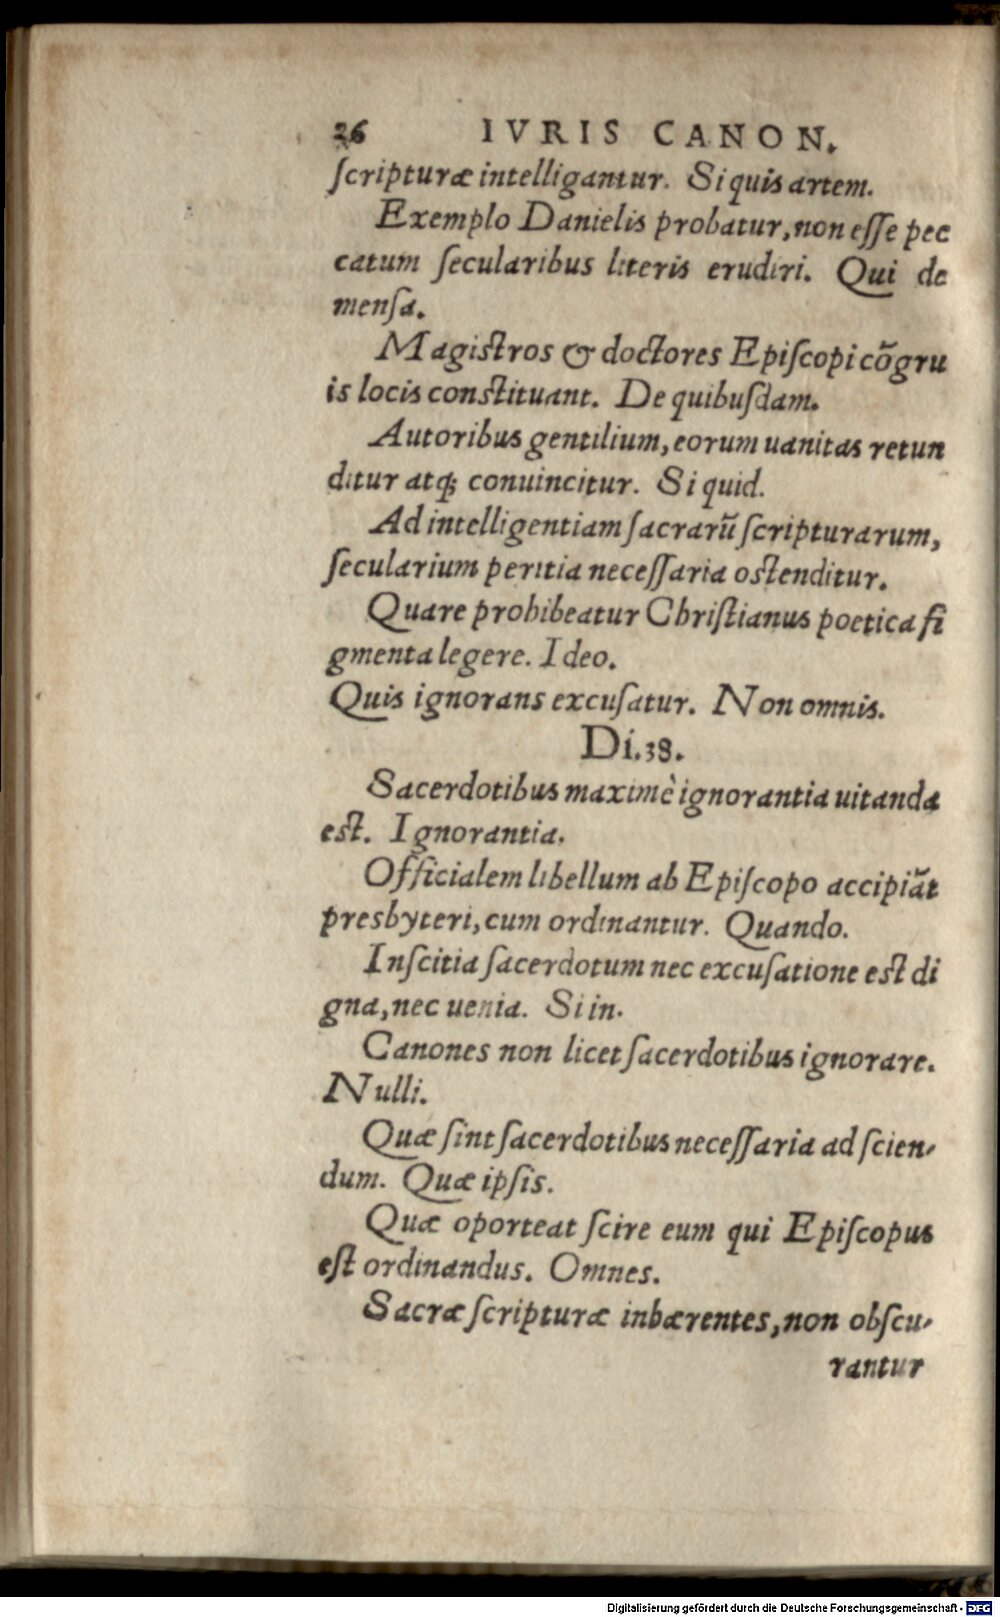 26 IVRIS CANON.
ſcripturæ intelligantur. Si quis artem.
Exemplo Danielis probatur, non eſſe pec
catum ſecularibus literis erudiri. Qui de
menſa.
Magiſtros & doctores Epiſcopi cõgru
is locis conſtituant. De quibuſdam.
Autoribus gentilium, eorum uanitas retun
ditur atq; conuincitur. Si quid.
Ad intelligentiam ſacrarũ ſcripturarum,
ſecularium peritia neceſſaria oſtenditur.
Quare prohibeatur Chriſtianus poetica fi
gmenta legere. Ideo.
Quis ignorans excuſatur. Non omnis.
Di. 38.
Sacerdotibus maximè ignorantia uitanda
eſt. Ignorantia.
Officialem libellum ab Epiſcopo accipiãt
presbyteri, cum ordinantur. Quando.
Inſcitia ſacerdotum nec excuſatione eſt di
gna, nec uenia. Si in.
Canones non licet ſacerdotibus ignorare.
Nulli.
Quæ ſint ſacerdotibus neceſſaria ad ſcien-
dum. Quæ ipſis.
Quæ oporteat ſcire eum qui Epiſcopus
eſt ordinandus. Omnes.
Sacræ ſcripturæ inhærentes, non obſcu-
rantur
Digitalisierung gefördert durch die Deutsche Forschungsgemeinschaft - DFG